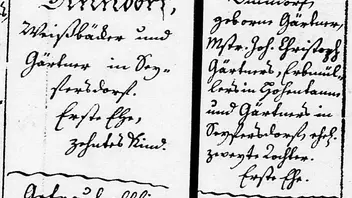 Weißbäcker und
Gärtner in Sey-
fersdorf.
Erste Ehe,
zehntes Kind.
geborne Gärtner,
Mstr. Joh. Christoph
Gärtners, Erbmül-
lers in Hohentanne
und Gärtners in
Seyfersdorf, ehel.
zweyte Tochter.
Erste Ehe.